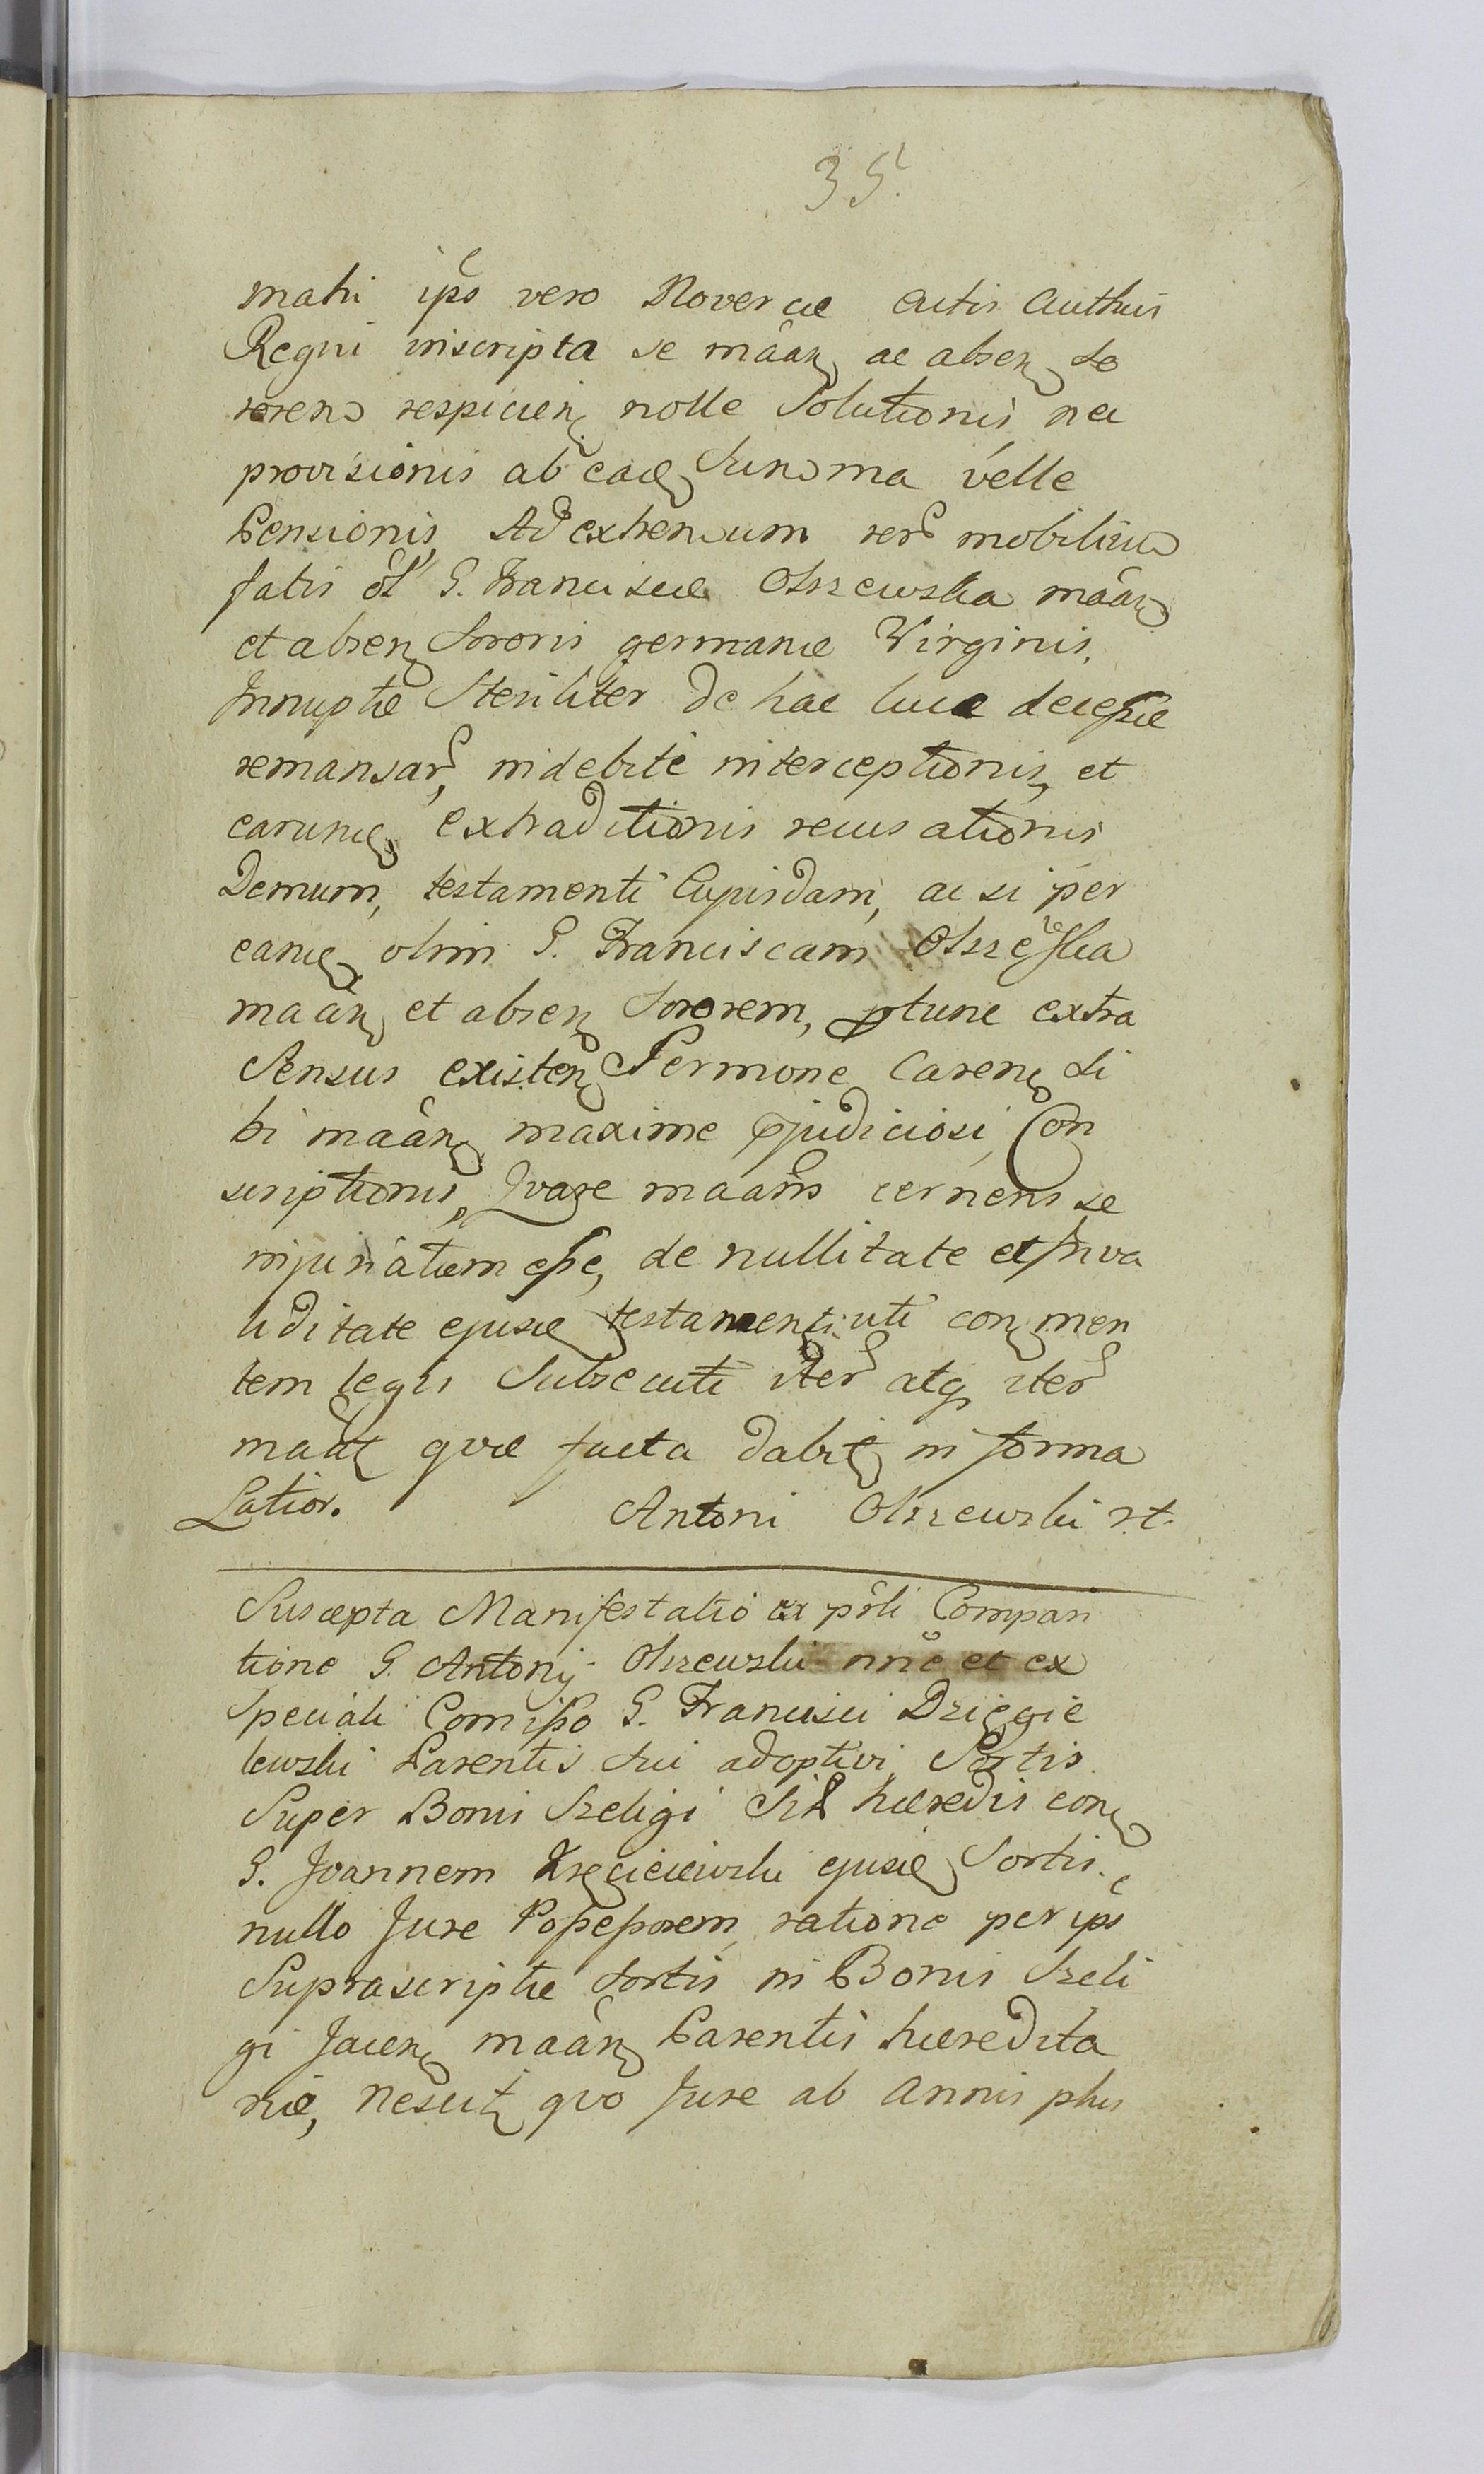 35.
matri ips vero Novercæ Actis Authcis
Regni inscripta se mâan ac absen So
roreno respicien nolle Solutionis nec
provisionis ab eade Summa velle
Pensionis, Ad extremum rer mobilium
fatis ol G. Franciscæ Olszewska mâan
et absen Sororis germanæ Virginis,
Innuptæ Steriliter de hac luce decessæ
remansar, indebité interceptionis, et
earunde, extraditionis recusationis
Demum, testamenti Cujusdam, ac si per
eande olim G. Franciscam Olszewska
maân et absen Sororem, ptunc extra
Sensus existen Sermone Caren Si
bi maân maxime pjudiciosi, Con
scriptionis, Qvare maans cernens se
injuriatum esse, de nullitate et Inva
liditate ejusde testamenti uti con men
tem legis Subsecuti iter atq iter
maat qvæ facta dabit in forma
Latior. Antoni Olszewski st.
Suscepta Manifestatio ex psli Compari
tione G. Antonij Olszewski nne et ex
Speciali Comisso G. Francisci Dzięgie
lewski Parentis Sui adoptivi Sortis
Super Bonis Szeligi Sit hæredis con
G. Joannem ejusde Sortis
nullo Jure Possessorem, ratione per ips
Suprascriptæ Sortis in Bonis Szeli
gi Jacen maân Parentis hæredita
riæ, nescit qvo Jure ab Annis plus